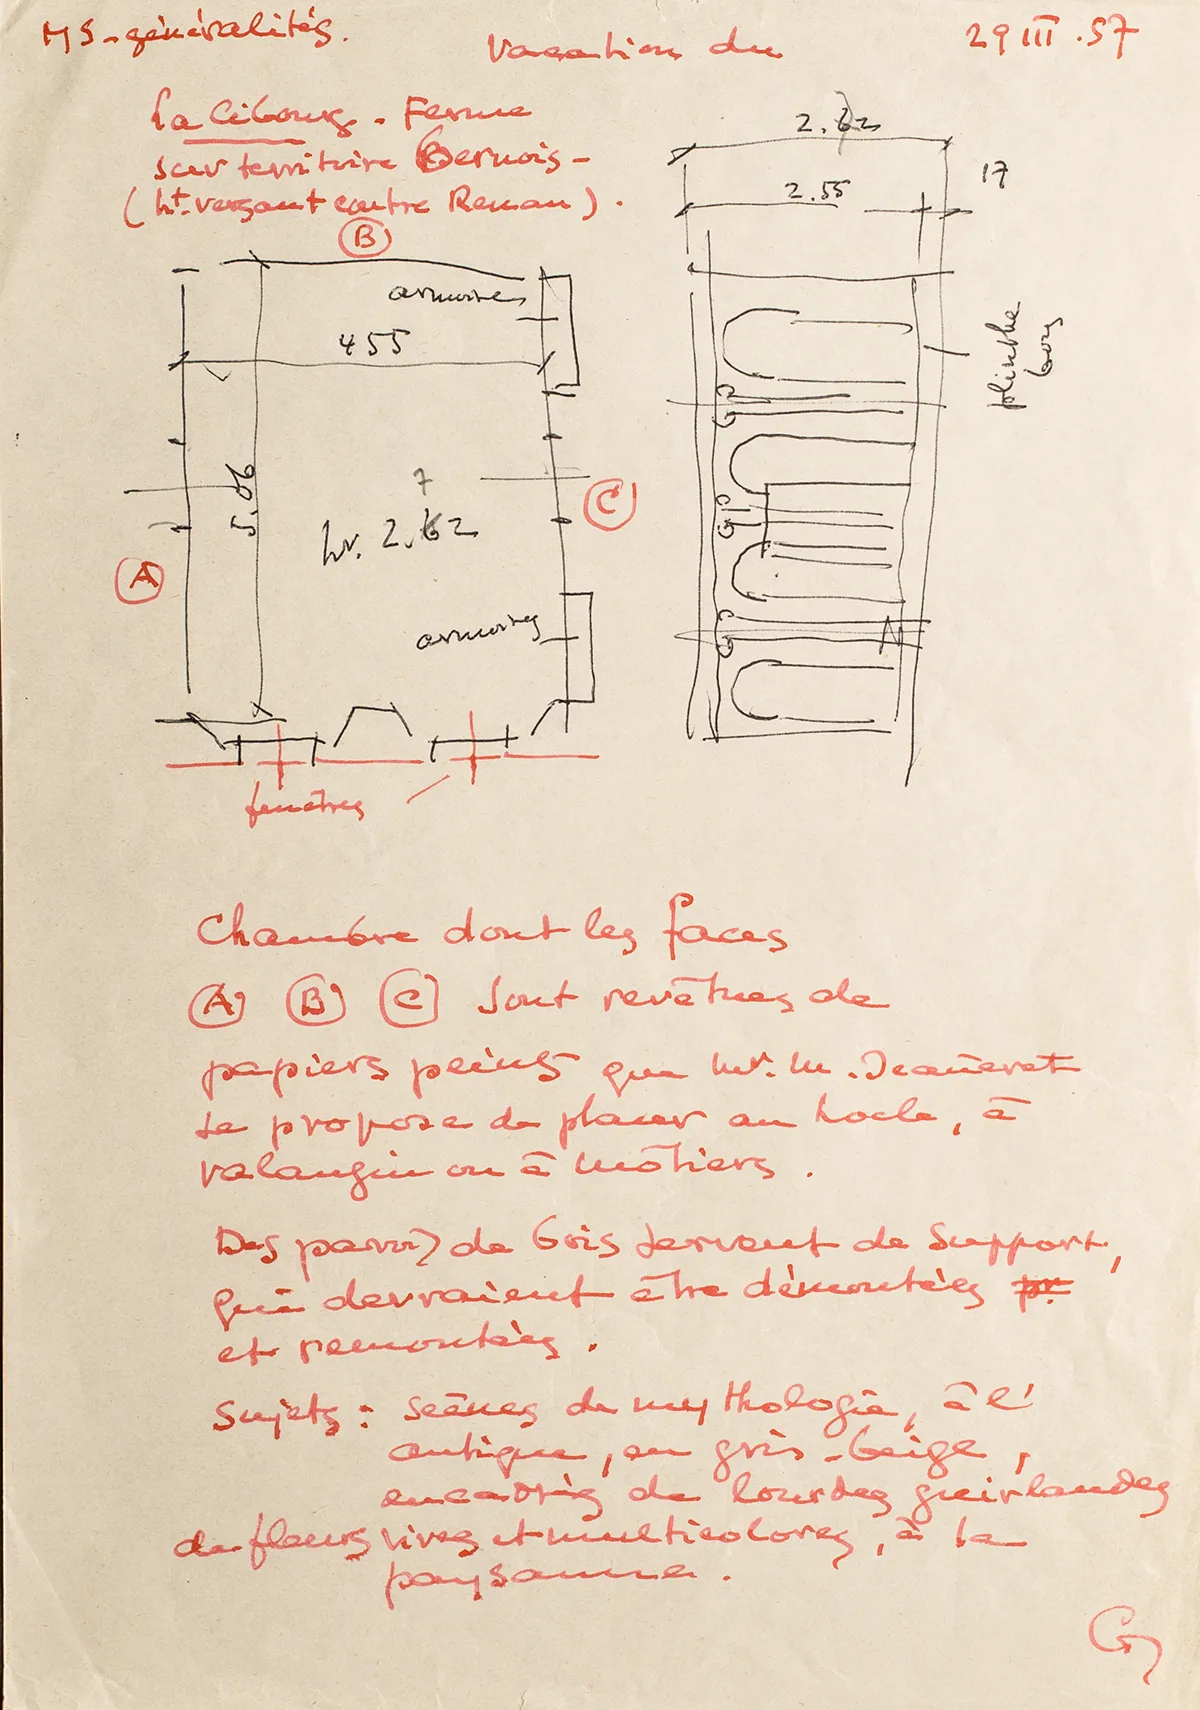 MS - généralités.
Vacation du
29 III . 57
La Cibourg . Ferme
sur territoire Bernois -
(ht. versant contre Renan) .
B
armoires
455
5.06
7
hr. 2.62
A
C
armoires
fenêtres
2.62
2.55
17
plinthe
bois
Chambre dont les faces
A B C sont revêtues de
papiers peints que Mr. M. Jeanneret
se propose de placer au Locle, à
Valangin ou à Môtiers .
Des parois de bois servent de support,
qui devraient être démontées pr
et remontées .
Sujets : scènes de mythologie, à l'
antique, en gris-beige ,
encadrés de lourdes guirlandes
de fleurs vives et multicolores, à la
paysanne .